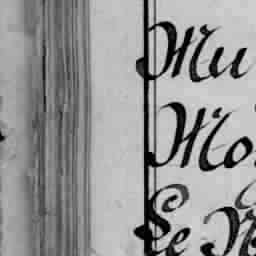 Mu
Mo
Le N